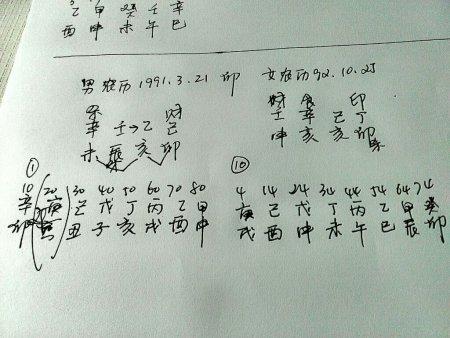 乙 甲 癸 壬 辛
酉 申 未 午 巳
男农历1991.3.21 卯 女农历92.10.25
财 财 食 印
辛 壬→乙 己 壬 辛 己 丁
未 辰 亥 卯 申 亥 亥 卯
① ⑩
10 20 30 40 50 60 70 80 4 14 24 34 44 54 64 74
辛 庚 己 戊 丁 丙 乙 甲 庚 己 戊 丁 丙 乙 甲 癸
卯 寅 丑 子 亥 戌 酉 申 戌 酉 申 未 午 巳 辰 卯